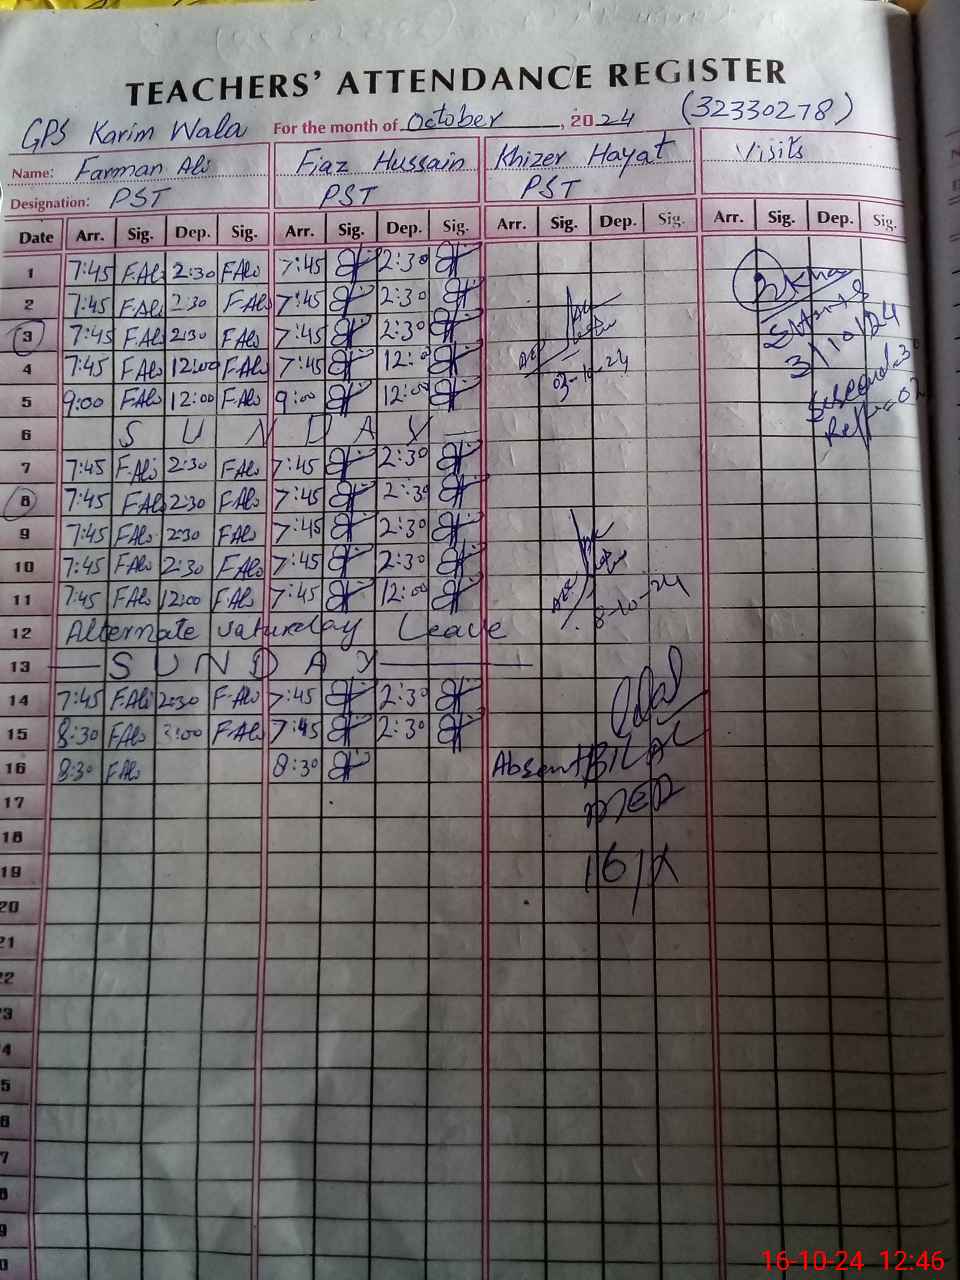 TEACHERS' ATTENDANCE REGISTER
GPS Karim Wala For the month of October, 2024 (32330278)
Name: Farman Ali Fiaz Hussain Khizer Hayat Visits
Designation: PST PST PST
Date Arr. Sig. Dep. Sig. Arr. Sig. Dep. Sig. Arr. Sig. Dep. Sig. Arr. Sig. Dep. Sig.
1 7:45 F.Ali 2:30 F.Ali 7:45 2:30
2 7:45 F.Ali 2:30 F.Ali 7:45 2:30
3 7:45 F.Ali 2:30 F.Ali 7:45 2:30 3/10/24
4 7:45 F.Ali 12:00 F.Ali 7:45 12:00 03-10-24
5 9:00 F.Ali 12:00 F.Ali 9:00 12:00
6 SUNDAY
7 7:45 F.Ali 2:30 F.Ali 7:45 2:30
8 7:45 F.Ali 2:30 F.Ali 7:45 2:30
9 7:45 F.Ali 2:30 F.Ali 7:45 2:30
10 7:45 F.Ali 2:30 F.Ali 7:45 2:30
11 7:45 F.Ali 12:00 F.Ali 7:45 12:00 8-10-24
12 Alternate saturday Leave
13 — SUNDAY —
14 7:45 F.Ali 2:30 F.Ali 7:45 2:30
15 8:30 F.Ali 3:00 F.Ali 7:45 2:30
16 8:30 F.Ali 8:30 Absent BILAL
17 MEA
18
19 16/X
20
21
22
23
24
25
26
27
28
29
30
16-10-24 12:46